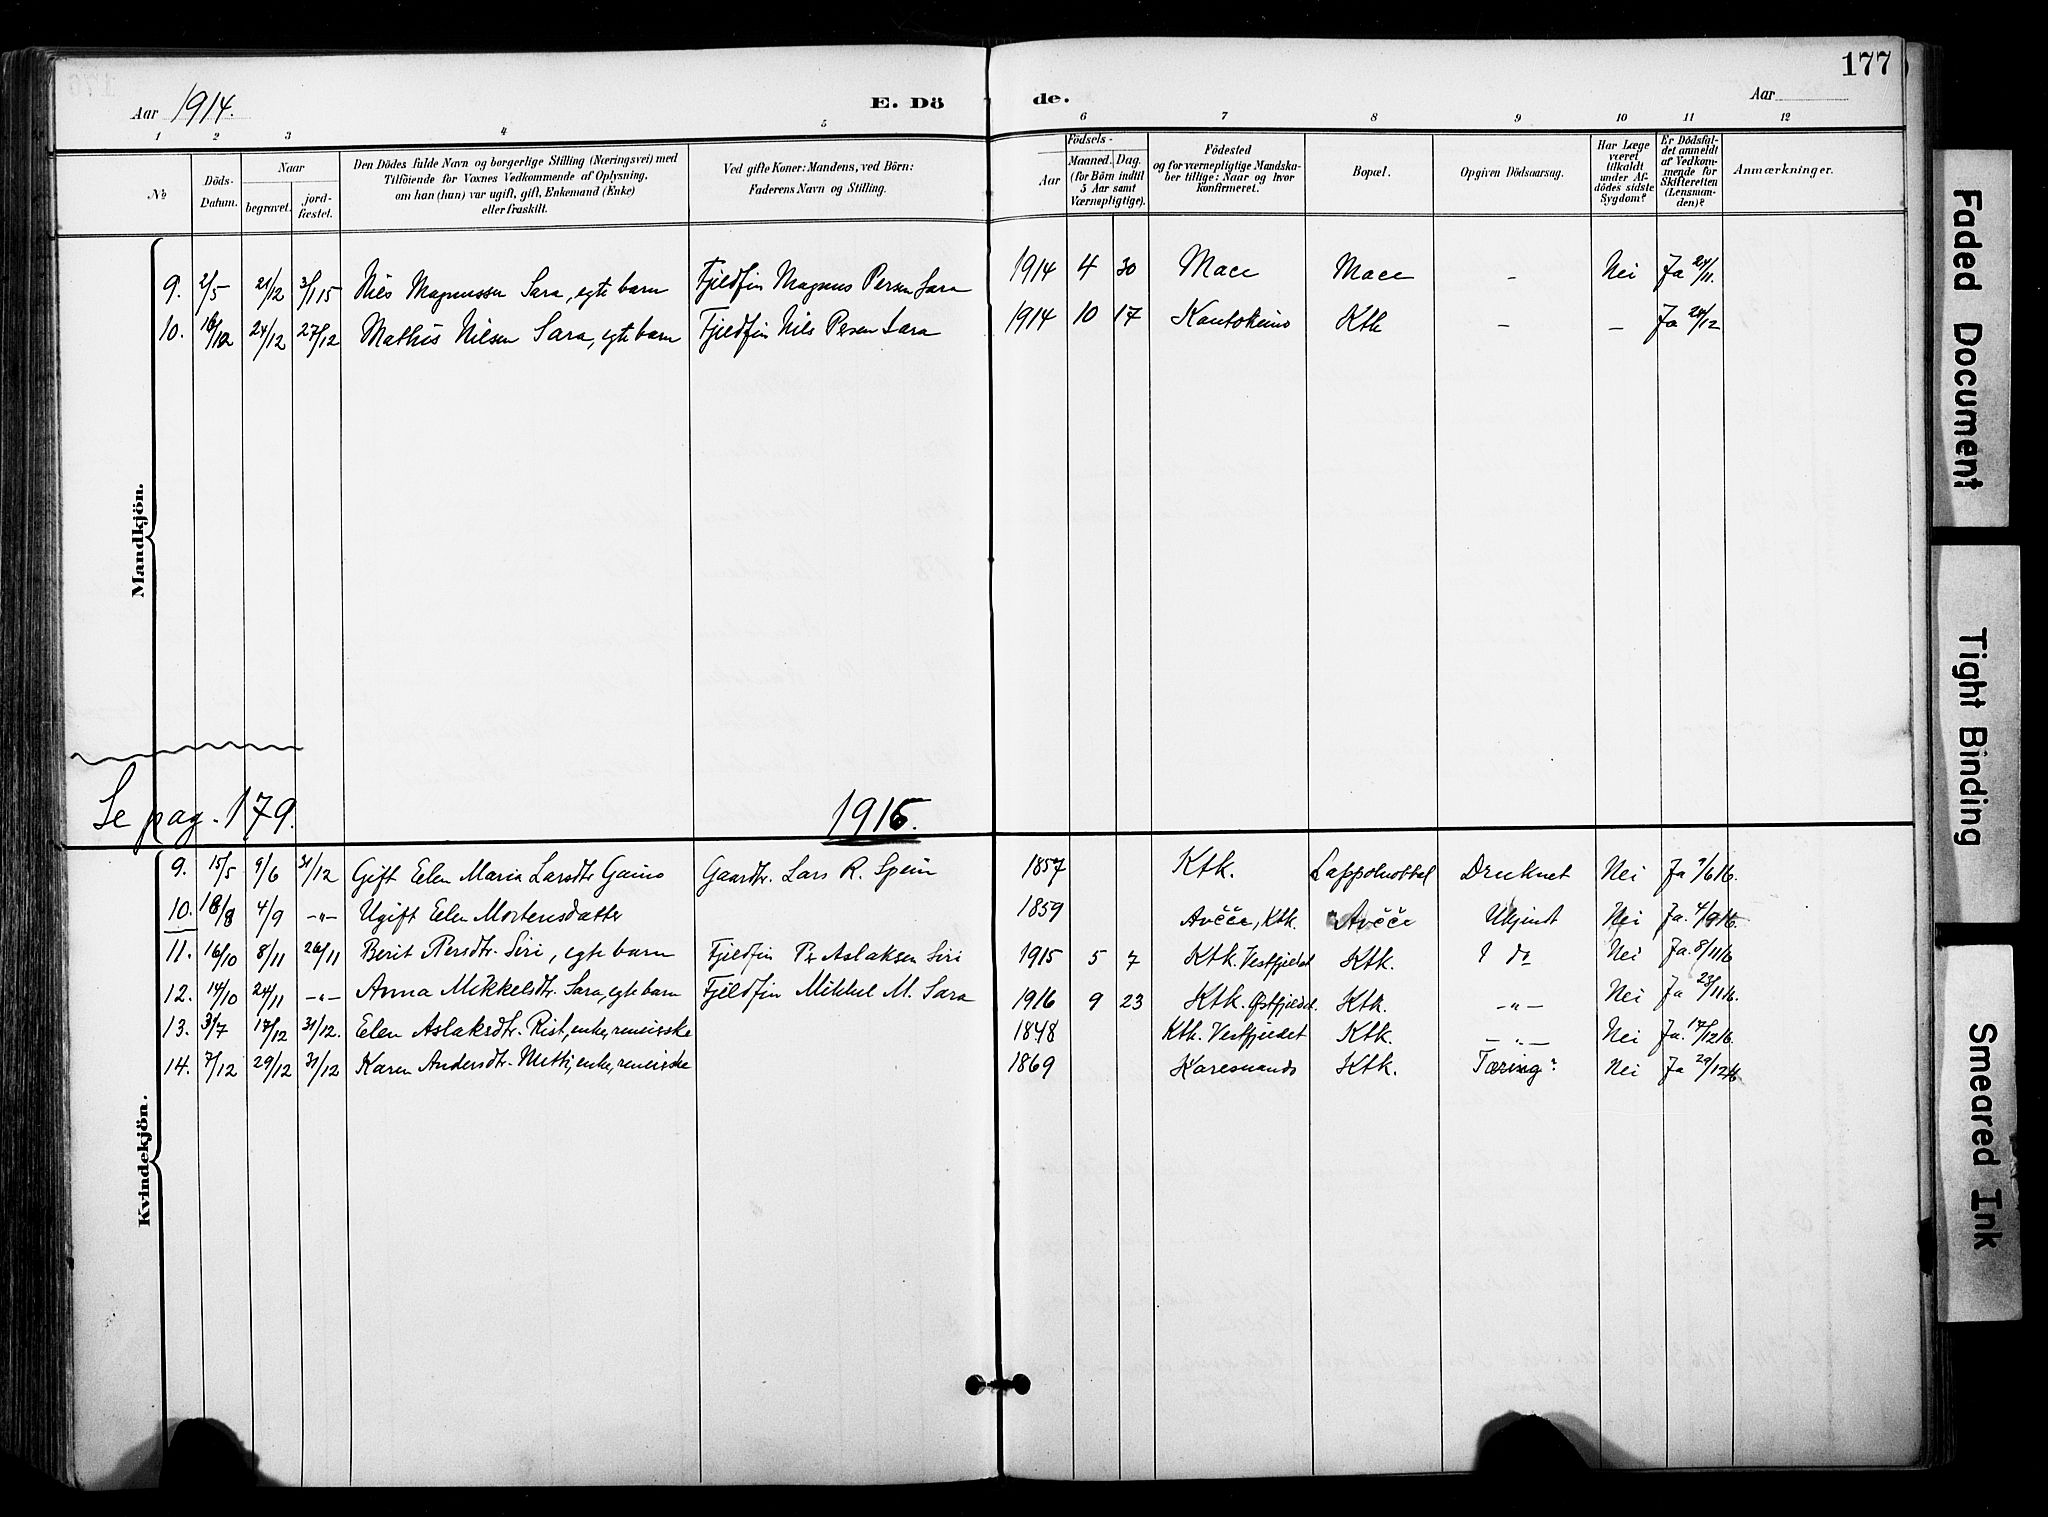 177
Aar 1914.
E. Dö de.
Aar
1 2 3 4 5 6 7 8 9 10 11 12
No.
Döds-Datum.
Naar
begravet.
jord-fæstet.
Den Dödes fulde Navn og borgerlige Stilling (Næringsvei) med
Tilföiende for Voxnes Vedkommende af Oplysning,
om han (hun) var ugift, gift, Enkemand (Enke)
eller fraskilt.
Ved gifte Koner: Mandens, ved Börn:
Faderens Navn og Stilling.
Födsels-
Aar
Maaned. Dag.
(for Börn indtil
5 Aar samt
Værnepligtige).
Födested
og for værnepligtige Mandska-
ber tillige: Naar og hvor
konfirmeret.
Bopæl.
Opgiven Dödsaarsag.
Har Læge
været
tilkaldt
under Af-
dödes sidste
Sygdom?
Er Dödsfal-
det anmeldt
af Vedkom-
mende for
Skifteretten
(Lensman-
den)?
Anmærkninger.
Mandkjön.
9. 2/5 21/12 3/1 15 Nils Magnussen Sara, egte barn Fjeldfin Magnus Persen Sara 1914 4 30 Mace Mace - Nei Ja 24/11.
10. 18/12 24/12 27/12 Mathis Nilsen Sara, egte barn Fjeldfin Nils Persen Sara 1914 10 17 Kautokeino Ktk - - Ja 24/12
Se pag. 179.
1916.
Kvindekjön.
9. 15/5 9/6 31/12 Gift Elen Maria Larsdtr Gaino Gaardbr. Lars R. Spein 1857 Ktk. Lappoluobbal Druknet Nei Ja 9/6 16.
10. 18/8 4/9 -"- Ugift Elen Mortensdatter 1859 Avčče, Ktk. Avčče Ukjendt Nei Ja. 4/9 16.
11. 16/10 8/11 26/11 Berit Persdtr. Siri, egte barn Fjeldfin Per Aslaksen Siri 1915 5 7 Ktk. Vestfjeldet Ktk. do Nei Ja. 8/11 16
12. 14/10 24/11 -"- Anna Mikkelsdtr. Sara, egte barn Fjeldfin Mikkel M. Sara 1916 9 23 Ktk. Østfjeldet. Ktk. -"- Nei Ja 23/11 16.
13. 3/7 17/12 31/12. Elen Aslaksdtr. Rist, enke, reneierske 1848 Ktk. Vestfjeldet Ktk. -"- Nei Ja. 17/12 16.
14. 7/12 29/12 31/12 Karen Andersdtr. Utsi, enke, reneierske 1869 Karesuando Ktk. Tæring? Nei Ja 29/12 16
Faded Document
Tight Binding
Smeared Ink